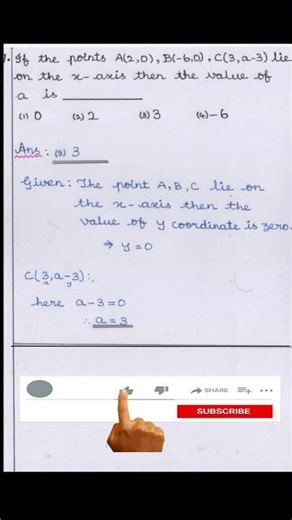 1. If the points A(2,0), B(-6,0), C(3,a-3) lie
on the x-axis then the value of
a is __________
(1) 0 (2) 2 (3) 3 (4) -6
Ans: (3) 3
Given: The point A, B, C lie on
the x-axis then the
value of y coordinate is zero.
⇒ y=0
C(3,a-3):
x y
here a-3=0
∴ a=3
SHARE
SUBSCRIBE